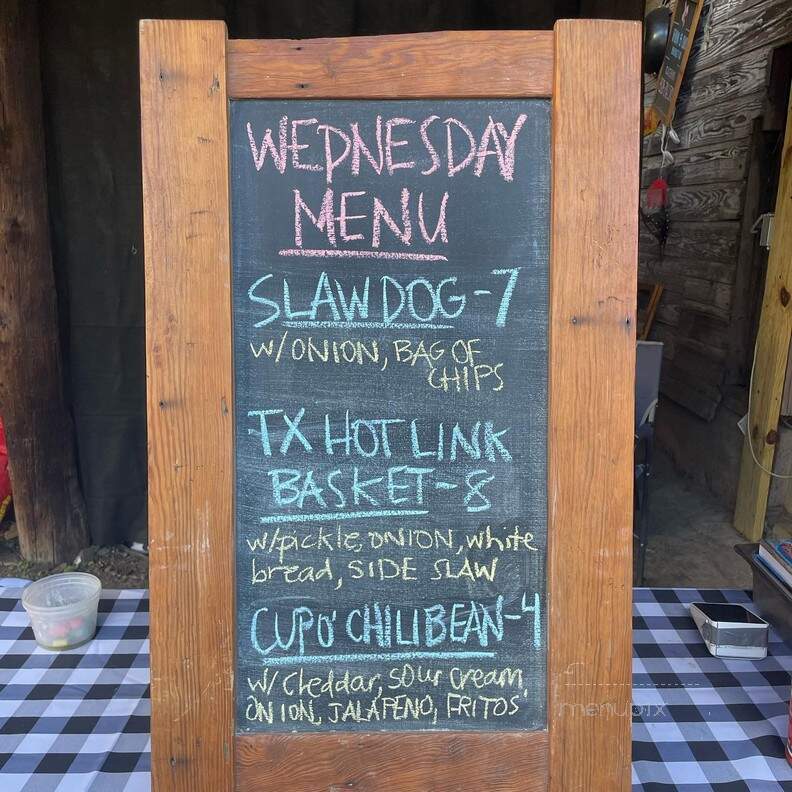 WEDNESDAY
MENU
SLAW DOG - 7
W/ONION, BAG OF
CHIPS
TX HOT LINK
BASKET - 8
w/pickle, ONION, white
bread, SIDE SLAW
CUP O' CHILI BEAN - 4
w/ Cheddar, sour cream,
ONION, JALAPENO, FRITOS
menupix